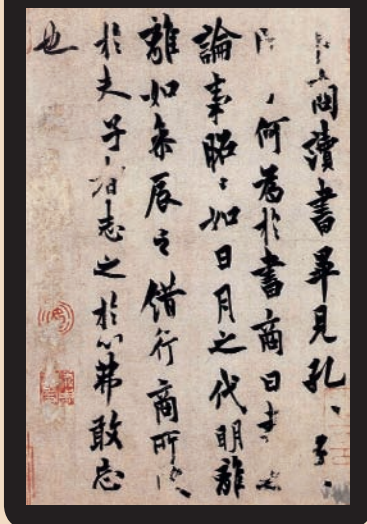 問讀書畢見孔子
何為於書商曰書
論事昭〻如日月之代明離
離如參辰之錯行商所
於夫子者志之於心弗敢忘
也